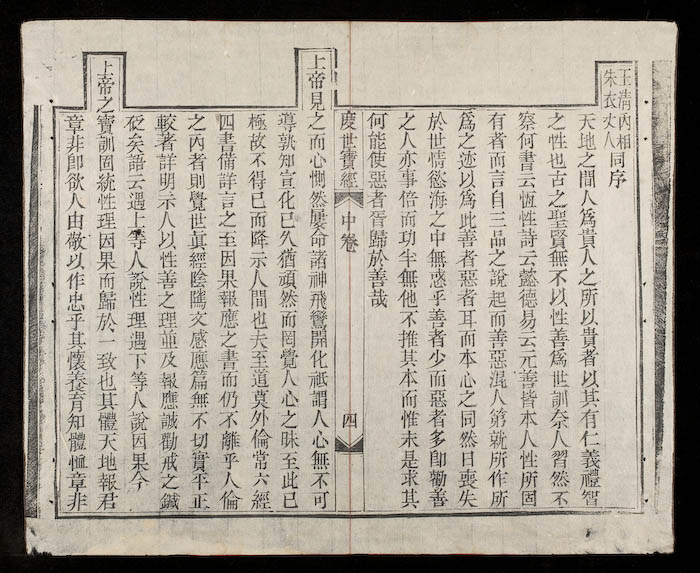 玉清內相
朱衣丈人
同序
天地之間人爲貴人之所以貴者以其有仁義禮智
之性也古之聖賢無不以性善爲世訓奈人習然不
察何書云恆性詩云懿德易云元善皆本人性所固
有者而言自三品之說起而善惡混人第就所作所
爲之迹以爲此善者惡者耳而本心之同然日喪失
於世情慾海之中無惑乎善者少而惡者多卽勸善
之人亦事倍而功半無他不推其本而惟末是求其
何能使惡者胥歸於善哉
度世寶經 中卷 四
上帝見之而心惻然屢命諸神飛鸞開化祗謂人心無不可
導孰知宣化已久猶頑然而罔覺人心之昧至此已
極故不得已而降示人間也夫至道莫外倫常六經
四書備詳言之至因果報應之書而仍不離乎人倫
之內者則覺世眞經陰隲文感應篇無不切實平正
較著詳明示人以性善之理並及報應誠勸戒之鍼
砭矣語云遇上等人說性理遇下等人說因果今
上帝之寶訓固統性理因果而歸於一致也其體天地報君
章非卽欲人由敬以作忠乎其懷養育知體恤章非